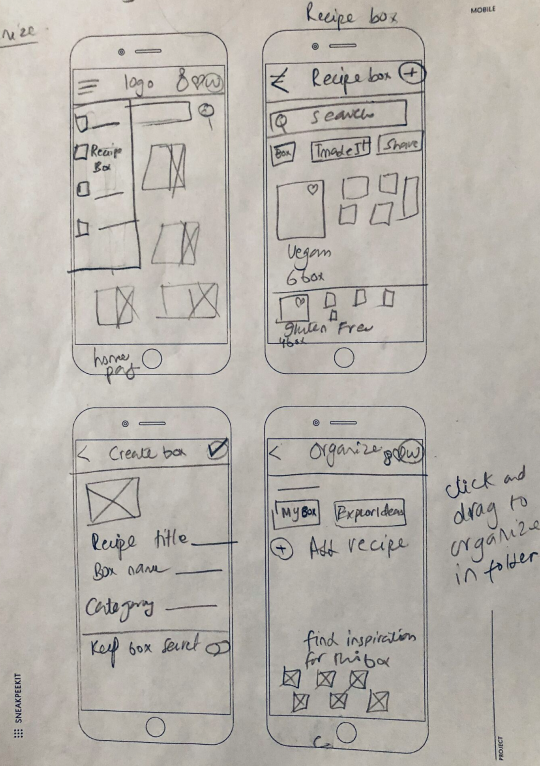 Recipe box
MOBILE
nize
logo
W
Recipe
Box
home
pag
Recipe box +
search
Box I made It Share
Vegan
6 box
Gluten Free
4 box
Create box
Recipe title
Box name
Category
Keep box secret
Organize W
My Box Explor Ideas
+ Add recipe
find inspiration
for this box
click and
drag to
organize
in folder
SNEAKPEEKIT
PROJECT